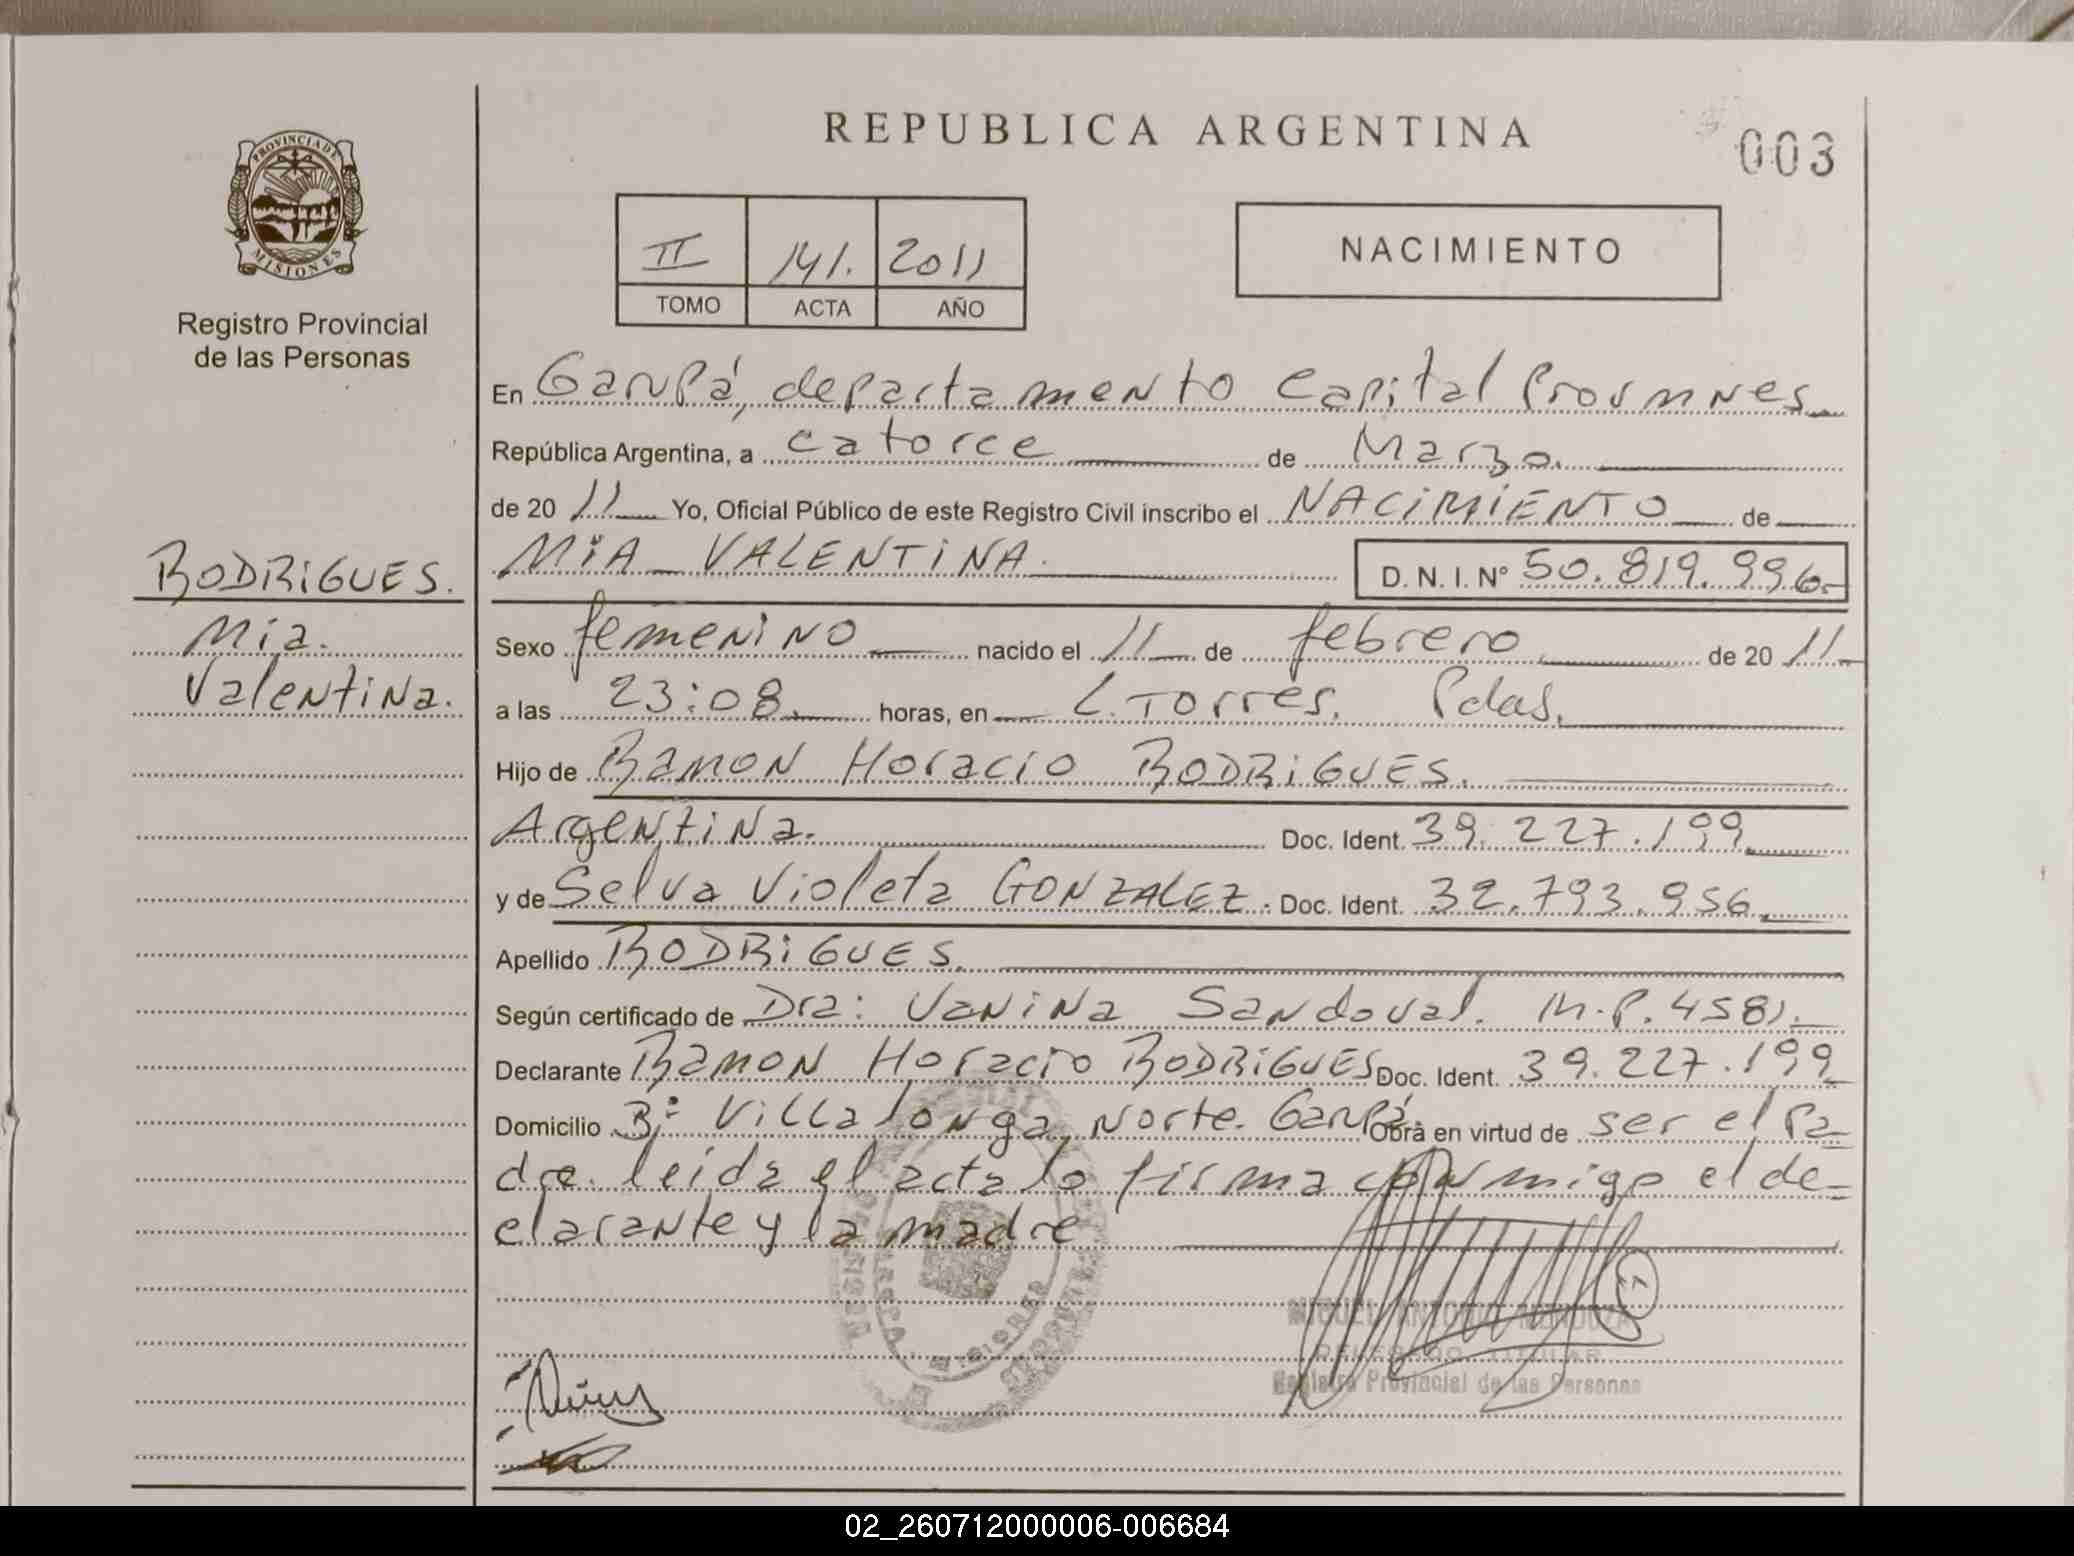 REPUBLICA ARGENTINA
003
PROVINCIA DE
MISIONES
Registro Provincial
de las Personas
II 141. 2011
TOMO ACTA AÑO
NACIMIENTO
En Garupá, departamento Capital Prov mnes
República Argentina, a catorce de Marzo.
de 20 11 Yo, Oficial Público de este Registro Civil inscribo el NACIMIENTO de
MIA VALENTINA. D. N. I. Nº 50.819.996.-
RODRIGUES.
Mia.
Valentina.
Sexo femenino nacido el 11 de febrero de 20 11
a las 23:08. horas, en L. Torres. Pdas.
Hijo de Ramon Horacio RODRIGUES.
Argentina. Doc. Ident. 39.227.199
y de Selva Violeta GONZALEZ. Doc. Ident. 32.793.956
Apellido RODRIGUES.
Según certificado de Dra: Vanina Sandoval. M.P. 4581.
Declarante Ramon Horacio RODRIGUES Doc. Ident. 39.227.199
Domicilio Bº Villalonga, Norte. Garupá Obra en virtud de ser el pa-
dre. leida el acta lo firma conmigo el de-
clarante y la madre
MIGUEL ANTONIO MENDOZA
DELEGADO TITULAR
Registro Provincial de las Personas
MISIONES
02_260712000006-006684